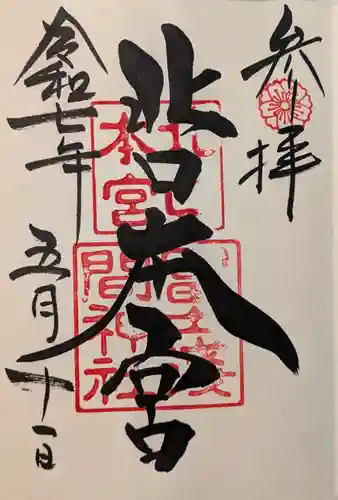 参拝
北口本宮
北口本宮
冨士淺間神社
令和七年
五月十一日